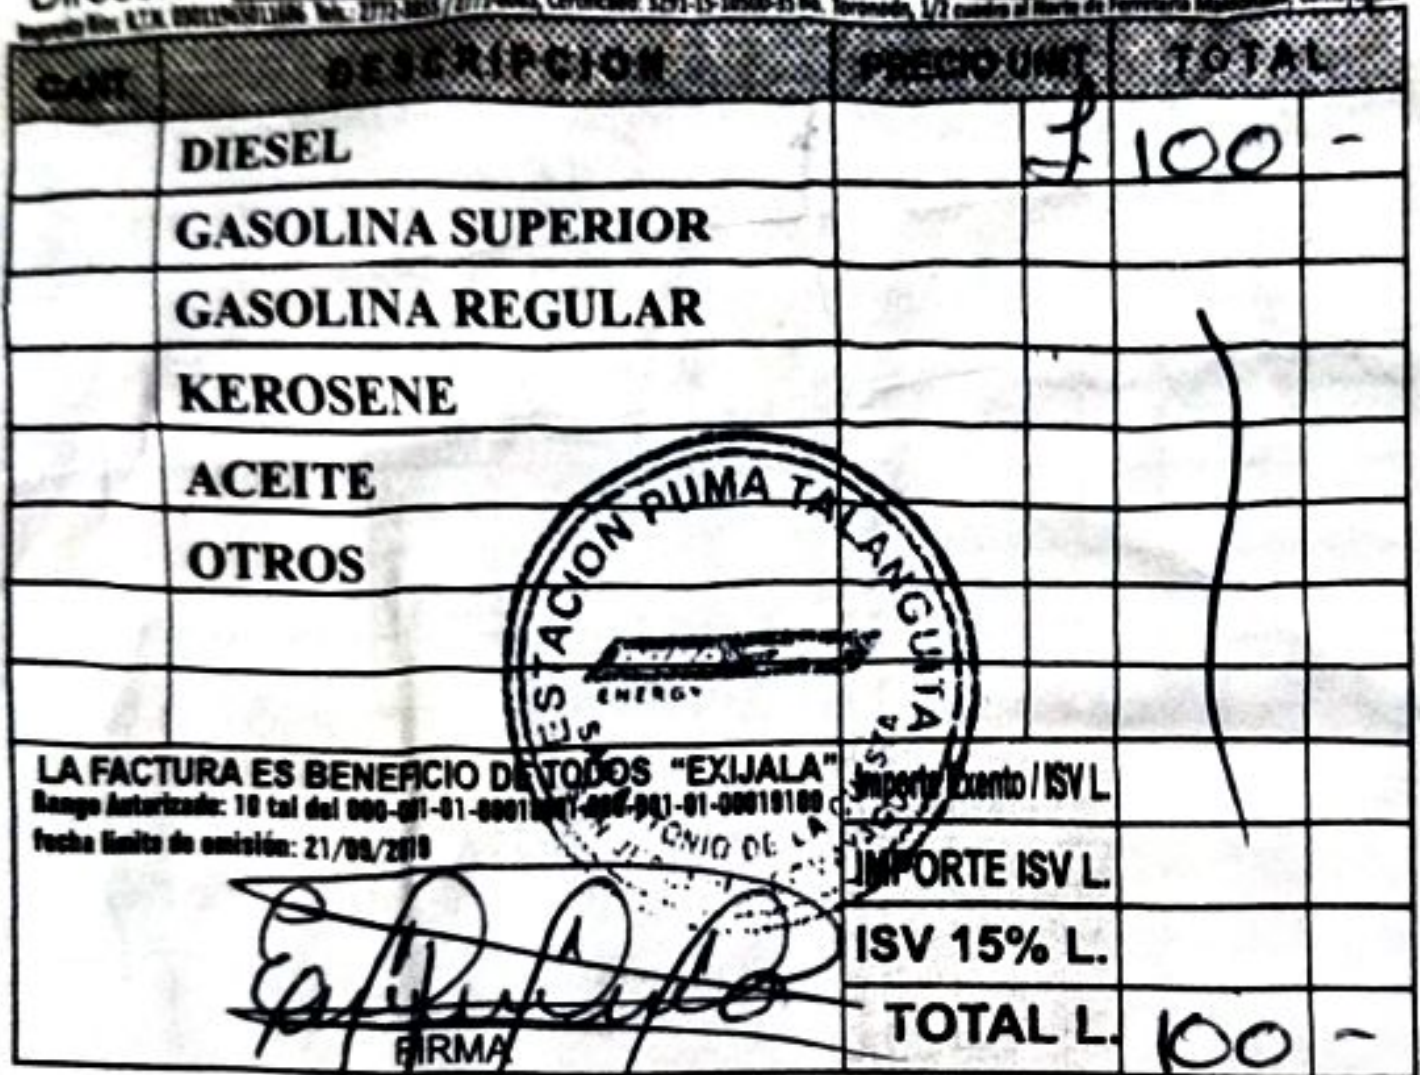 CANT. DESCRIPCION PRECIO UNIT TOTAL
DIESEL L 100 -
GASOLINA SUPERIOR
GASOLINA REGULAR
KEROSENE
ACEITE
OTROS
ESTACION PUMA TALANGUITA
ENERGY
LA FACTURA ES BENEFICIO DE TODOS "EXIJALA"
Rango Autorizado: 10 tal del
fecha limite de emisión:
Importe Exento / ISV L.
IMPORTE ISV L.
ISV 15% L.
TOTAL L. 100 -
FIRMA